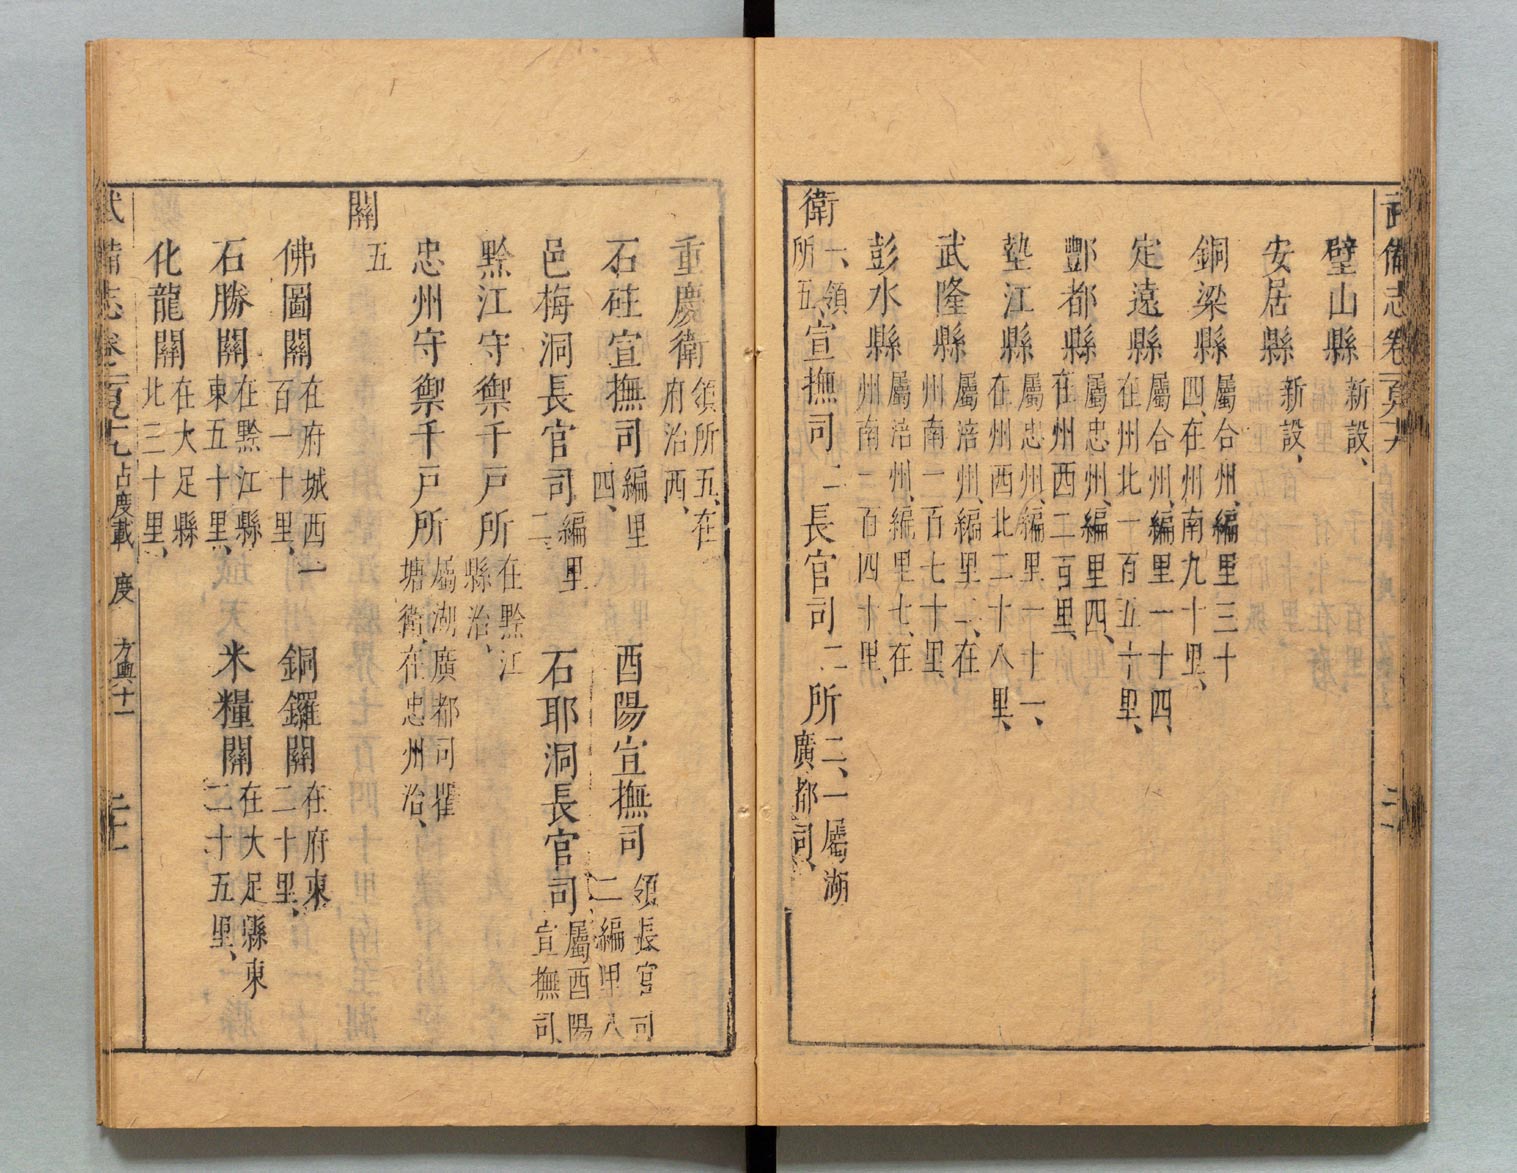 璧山縣 新設、
安居縣 新設、
銅梁縣 屬合州、編里三十四、在州南九十里、
定遠縣 屬合州、編里一十四、在州北一百五十里、
酆都縣 屬忠州、編里四、在州西二百里、
墊江縣 屬忠州、編里一十一、在州西北二十八里、
武隆縣 屬涪州、編里二、在州南一百七十里、
彭水縣 屬涪州、編里七、在州南三百四十里、
衛一、領所五、宣撫司二長官司二所二、一屬湖廣都司、
重慶衛 領所五、在府治西、
石砫宣撫司 編里四、 酉陽宣撫司 領長官司二、編里八
邑梅洞長官司 編里二、 石耶洞長官司 屬酉陽宣撫司、
黔江守禦千戶所 在黔江縣治、
忠州守禦千戶所 屬湖廣都司瞿塘衛、在忠州治、
關五
佛圖關 在府城西一百一十里、 銅鑼關 在府東二十里、
石勝關 在黔江縣東五十里、 米糧關 在大足縣東二十五里、
化龍關 在大足縣北三十里、
武備志卷一百九十 占度載 度 方輿十一